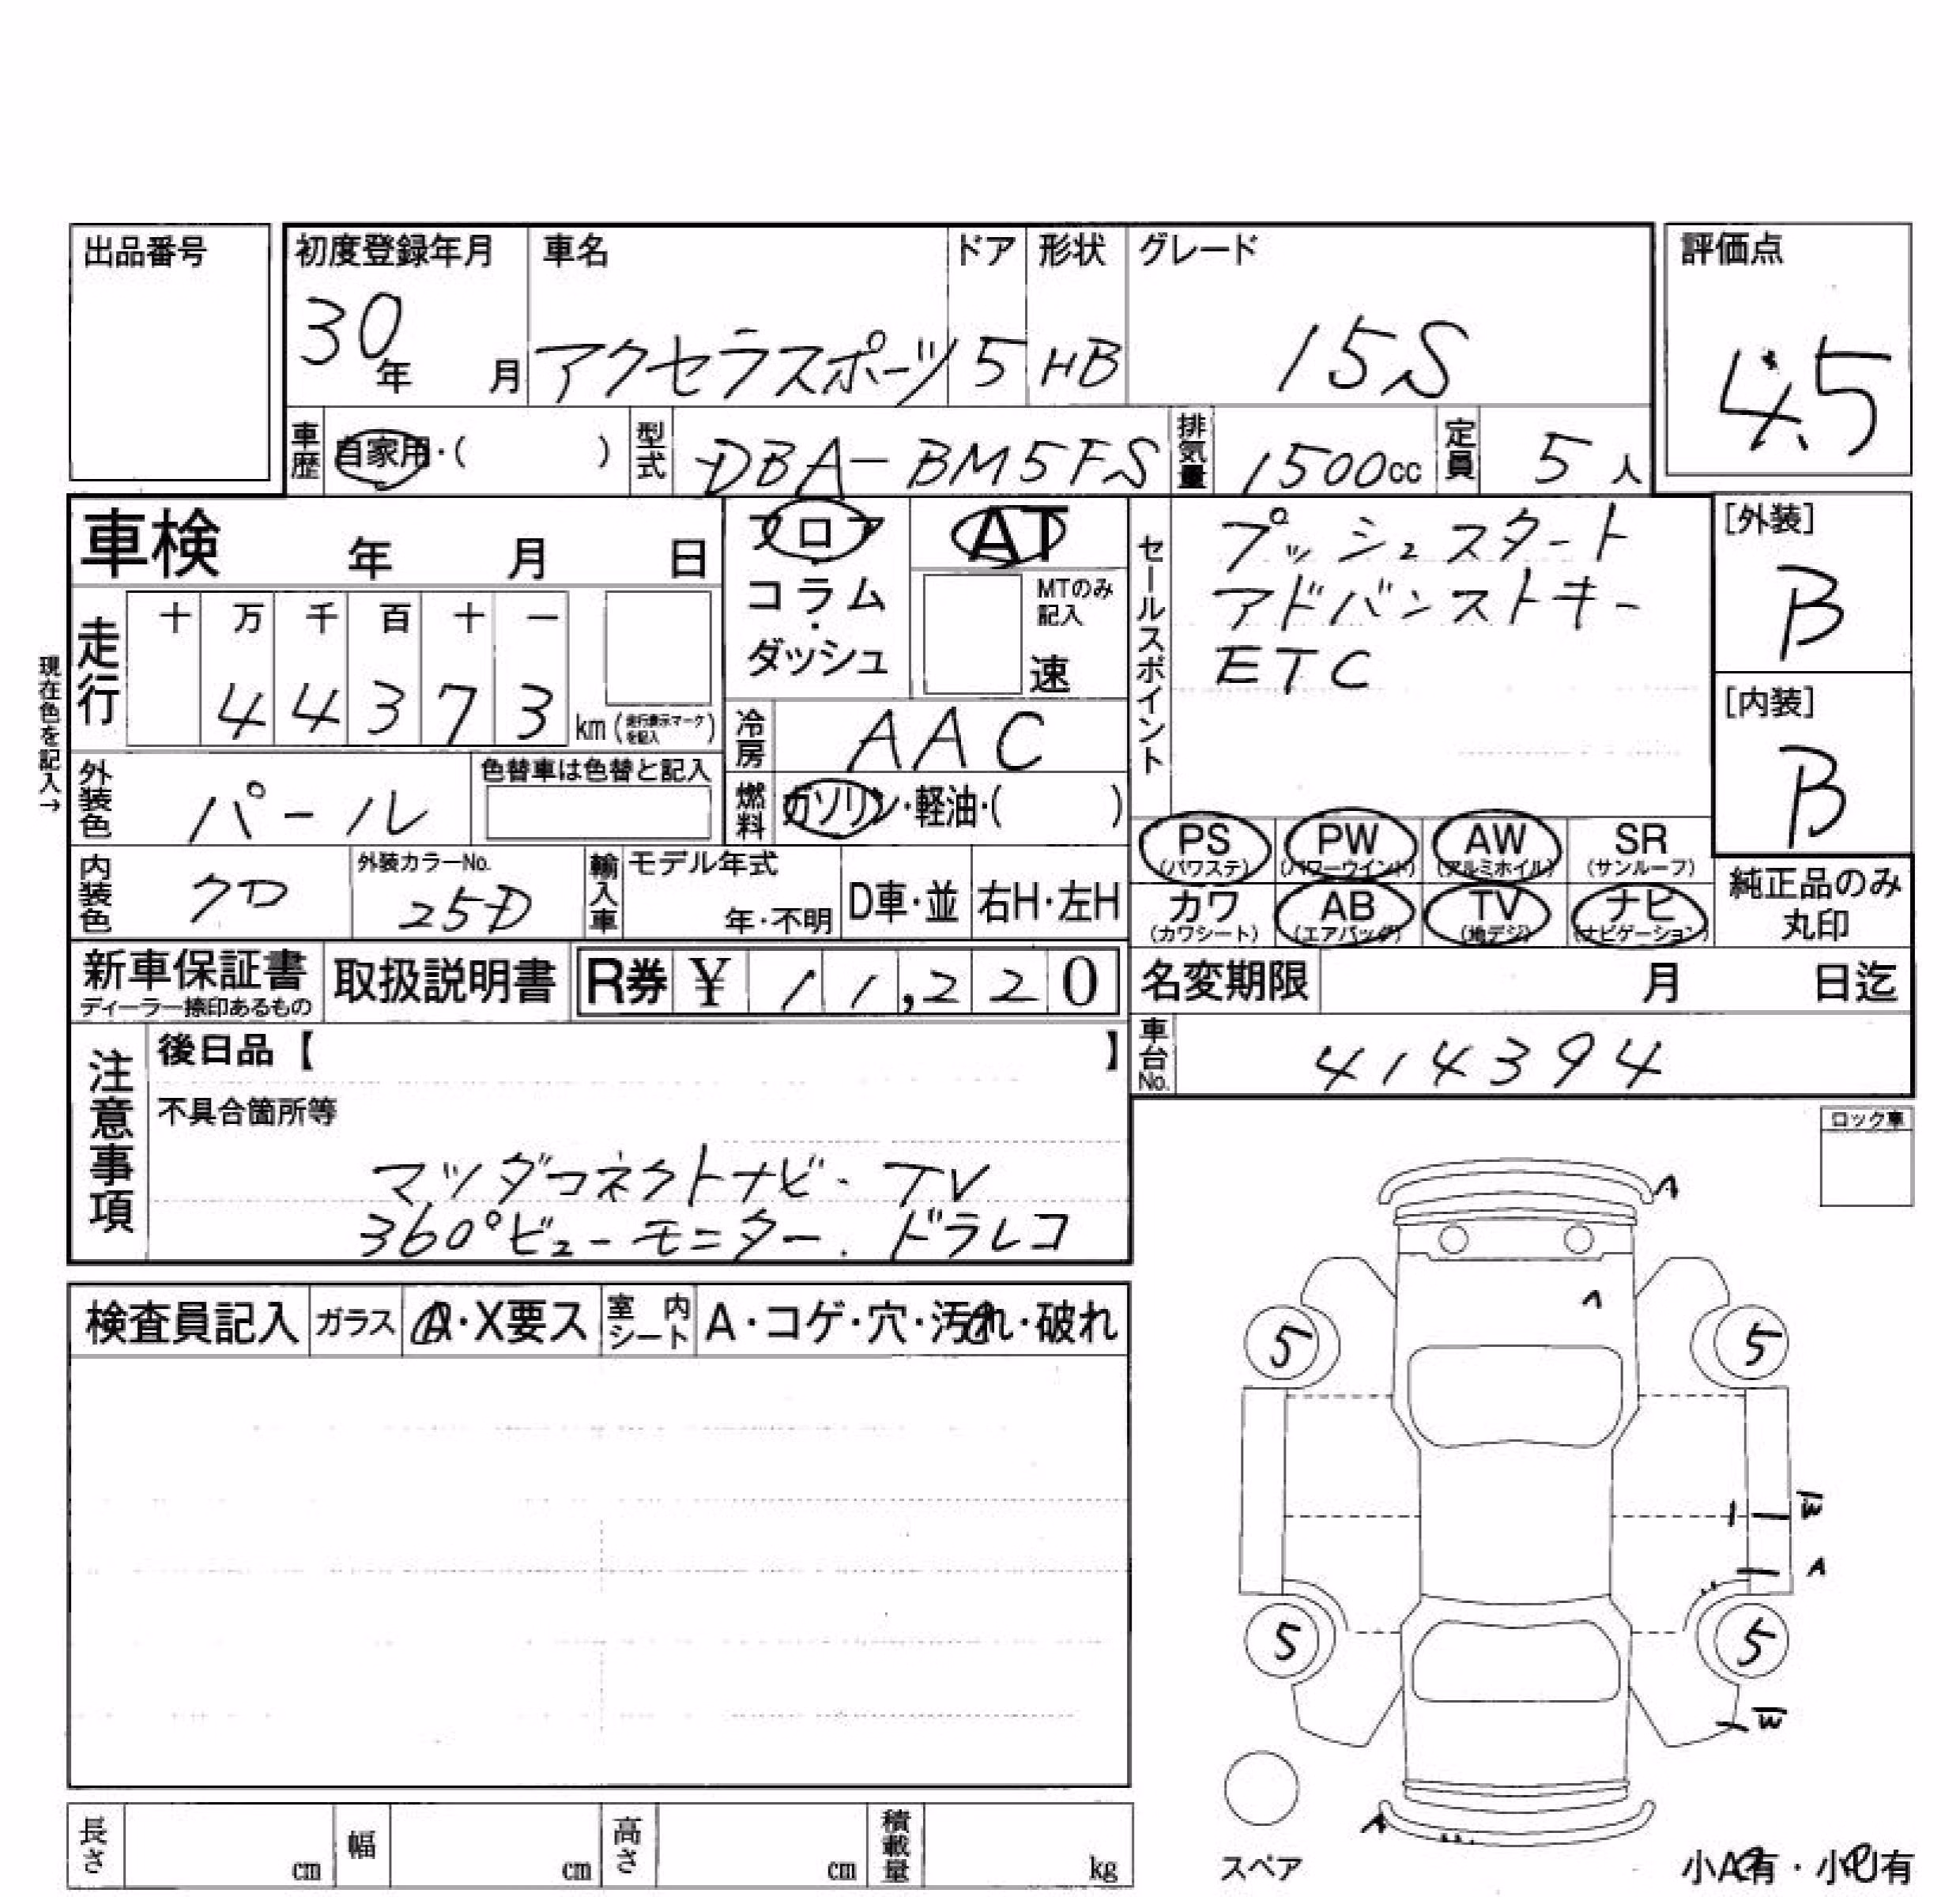 出品番号
初度登録年月 車名 ドア 形状 グレード 評価点
30年 月 アクセラスポーツ 5 HB 15S 4.5
車歴 自家用・( ) 型式 DBA-BM5FS 排気量 1500cc 定員 5人
車検 年 月 日
フロア・コラム・ダッシュ
AT
MTのみ記入
速
セールスポイント
プッシュスタート
アドバンストキー
ETC
[外装]
B
[内装]
B
現在色を記入→
走行 十 万 千 百 十 一
4 4 3 7 3 km (走行表示マークを記入)
冷房 AAC
外装色 パール 色替車は色替と記入
燃料 ガソリン・軽油・( )
PS (パワステ) PW (パワーウインド) AW (アルミホイル) SR (サンルーフ)
カワ (カワシート) AB (エアバッグ) TV (地デジ) ナビ (ナビゲーション)
純正品のみ丸印
内装色 クロ 外装カラーNo. 25D 輸入車 モデル年式 年・不明 D車・並 右H・左H
新車保証書 ディーラー捺印あるもの 取扱説明書 R券 ¥ 11,220
名変期限 月 日迄
車台No. 414394
注意事項
後日品【 】
不具合箇所等
マツダコネクトナビ・TV
360°ビューモニター. ドラレコ
ロック車
検査員記入 ガラス A・X要ス 室内シート A・コゲ・穴・汚れ・破れ
A
A
5 5
W
A
5 5
W
A
スペア
小A有・小U有
長さ cm 幅 cm 高さ cm 積載量 kg